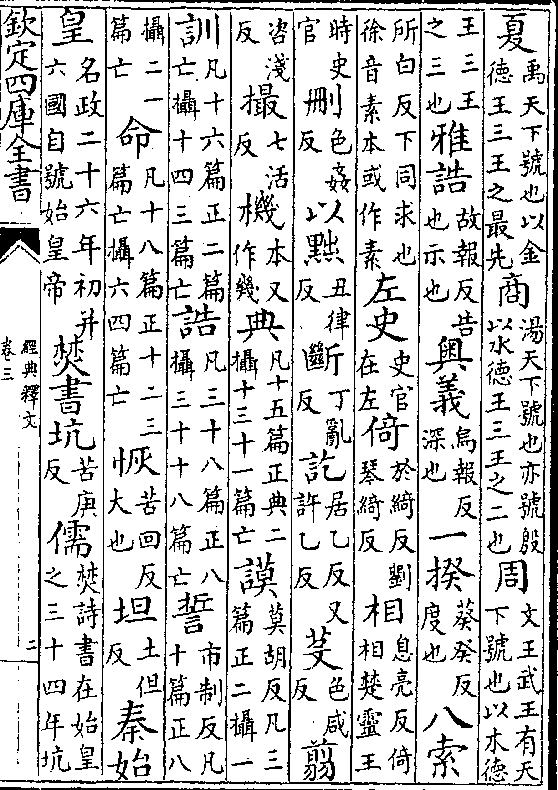 夏禹天下號也以金德王三王之最先商湯天下號也亦號殷以水德王三王之二也周文王武王有天下號也以木德
王三王之三也雅誥故報反告也示也奧義烏報反深也一揆葵癸反度也八索
所白反下同求也徐音素本或作素左史史官在左倚於綺反劉琴綺反相息亮反倚相楚靈王
時史官刪色姦反以黜丑律反斷丁亂反訖居乙反又許乙反芟色咸反翦
咨淺反撮七活反機本又作幾典凡十五篇正典二攝十三十一篇亡謨莫胡反凡三篇正二攝一
訓凡十六篇正二篇亡攝十四三篇亡誥凡三十八篇正八攝三十十八篇亡誓市制反凡十篇正八
攝二一篇亡命凡十八篇正十二三篇亡攝六四篇亡恢苦回反大也坦土但反秦始
皇名政二十六年初并六國自號始皇帝焚書坑苦庚反儒焚詩書在始皇之三十四年坑
欽定四庫全書
經典釋文
卷三
二